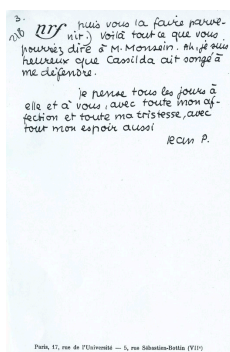 3.
nrf
puis vous la faire parve-
nir.) Voilà tout ce que vous
pourriez dire à M. Monsein. Ah, je suis
heureux que Cassilda ait songé à
me défendre.
je pense tous les jours à
elle et à vous, avec toute mon af-
fection et toute ma tristesse, avec
tout mon espoir aussi
Jean P.
Paris, 17, rue de l'Université — 5, rue Sébastien-Bottin (VIIe)